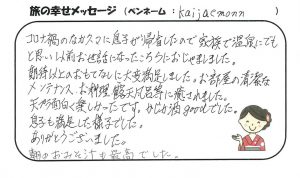 旅の幸せメッセージ (ペンネーム : kaijaemonn )
コロナ禍のなかスマに息子が帰省したので家族で温泉にでも
と思い以前お世話になったこちらにおじゃましました。
期待以上のおもてなしに大変満足しました。お部屋の清潔な
メンテナンス、お料理、露天風呂等に癒されました。
天然面白く楽しかったです。かじか湯goodでした。
息子も満足した様子でした。
ありがとうございました。
朝のおみそ汁も最高でした。